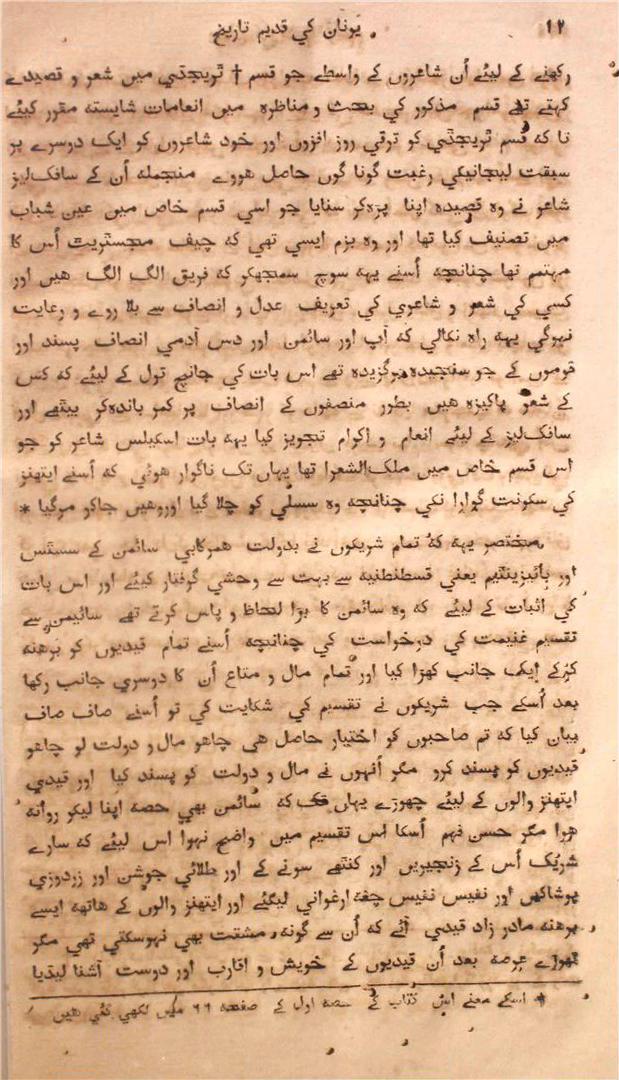 ۱۲ یونان کی قدیم تاریخ
رکھنے کے لیئے اُن شاعروں کے واسطے جو قسم † ٹریجڈي میں شعر و قصیدے
کہتے تھے قسم مذکور کي بحث و مناظرہ میں انعامات شایستہ مقرر کیئے
تا کہ قسم ٹریجڈي کو ترقي روز افزوں اور خود شاعروں کو ایک دوسرے پر
سبقت لیجانیکي رغبت گونا گوں حاصل هووے منجملہ اُن کے سافکلیز
شاعر نے وہ قصیدہ اپنا پڑہ‌کر سنایا جو اسي قسم خاص میں عین شباب
میں تصنیف کیا تھا اور وہ بزم ایسي تھي کہ چیف مجسٹریٹ اُس کا
مہتمم تھا چنانچہ اُسنے یہہ سوچ سمجھکر کہ فریق الگ الگ هیں اور
کسي کي شعر و شاعري کي تعریف عدل و انصاف سے بلا روے و رعایت
نہوگي یہہ راہ نکالي کہ آپ اور سائمن اور دس آدمي انصاف پسند اور
قوموں کے جو سنجیدہ برگزیدہ تھے اس بات کي جانچ تول کے لیئے کہ کس
کے شعر پاکیزہ هیں بطور منصفوں کے انصاف پر کمر باندہ‌کر بیٹھے اور
سافکلیز کے لیئے انعام و اکرام تجویز کیا یہہ بات اسکیلس شاعر کو جو
اس قسم خاص میں ملک‌الشعرا تھا یہاں تک ناگوار هوئي کہ اُسنے ایتھنز
کي سکونت گوارا نکي چنانچہ وہ سسلي کو چلا گیا اوروهیں جاکو مرگیا *
مختصر یہہ کہ تمام شریکوں نے بدولت همرکابي سائمن کے سسٹس
اور بائیزینٹیم یعني قسطنطنیہ سے بہت سے وحشي گرفتار کیئے اور اس بات
کي اثبات کے لیئے کہ وہ سائمن کا بڑا لحاظ و پاس کرتے تھے سائیمن سے
تقسیم غنیمت کي درخواست کي چنانچہ اُسنے تمام قیدیوں کو برهنہ
کرکے ایک جانب کھڑا کیا اور تمام مال و متاع اُن کا دوسري جانب رکھا
بعد اُسکے جب شریکوں نے تقسیم کي شکایت کي تو اُسنے صاف صاف
بیان کیا کہ تم صاحبوں کو اختیار حاصل هی چاهو مال و دولت لو چاهو
قیدیوں کو پسند کرو مگر اُنہوں نے مال و دولت کو پسند کیا اور قیدي
ایتھنز والوں کے لیئے چھوڑے یہاں تک کہ سائمن بھي حصہ اپنا لیکر روانہ
هوا مگر حسن فہم اُسکا اس تقسیم میں واضح نہوا اس لیئے کہ سارے
شریک اُس کے زنجیریں اور کنٹھے سونے کے اور طلائي جوشن اور زردوزي
پوشاکیں اور نفیس نفیس چغہ ارغواني لیگئے اور ایتھنز والوں کے هاتھہ ایسے
برهنہ مادر زاد قیدي آئے کہ اُن سے گونہ مشقت بھي نہوسکتي تھي مگر
تھوڑے عرصہ بعد اُن قیدیوں کے خویش و اقارب اور دوست آشنا لیڈیا
† اسکے معنے اس کتاب کے حصہ اول کے صفحہ ۶۶ میں لکھي گئي هیں